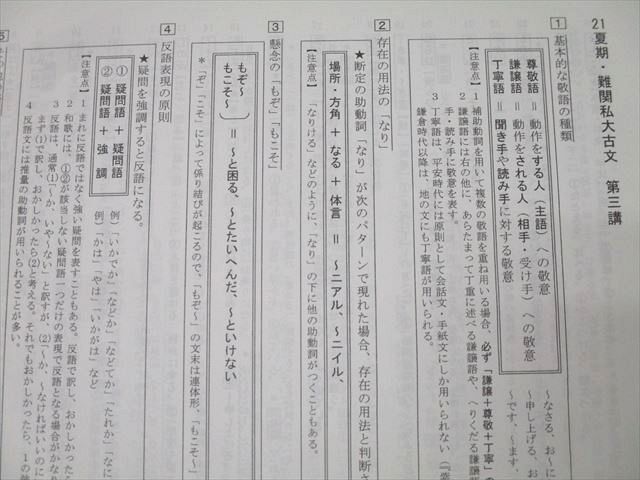 21夏期・難関私大古文　第三講
1 基本的な敬語の種類
尊敬語 ＝ 動作をする人（主語）への敬意
謙譲語 ＝ 動作をされる人（相手・受け手）への敬意
丁寧語 ＝ 聞き手や読み手に対する敬意
～なさる、お～に
～申し上げる、お
～です、～ます、
【注意点】
1 補助動詞を用いて複数の敬語を重ね用いる場合、必ず「謙譲＋尊敬＋丁寧」の
2 謙譲語には右の他に、あらたまって丁重に述べる謙譲語や、へりくだる謙譲語
手・読み手に敬意を表す。
3 丁寧語は、平安時代には原則として会話文・手紙文にしか用いられない
鎌倉時代以降は、地の文にも丁寧語が用いられる。
2 存在の用法の「なり」
★断定の助動詞「なり」が次のパターンで現れた場合、存在の用法と判断さ
場所・方角 ＋ なる ＋ 体言 ＝ ～ニアル、～ニイル、
【注意点】 「なりける」などのように、「なり」の下に他の助動詞がつくこともある。
3 懸念の「もぞ」「もこそ」
もぞ～
もこそ～
＝ ～と困る、～とたいへんだ、～といけない
＊「ぞ」「こそ」によって係り結びが起こるので、「もぞ～」の文末は連体形、「もこそ～」
4 反語表現の原則
★疑問を強調すると反語になる。
① 疑問語 ＋ 疑問語　例）「いかでか」「などか」「などてか」「たれか」「なに
② 疑問語 ＋ 強　調　例）「かは」「やは」「いかがは」など
【注意点】
1 まれに反語ではなく強い疑問を表すこともある。反語で訳し、おかしかった
2 和歌には、①②が該当しない疑問語一つだけの表現で反語となる場合がかな
3 反語は、通常(1)「～か、いや～ない」と訳すが、(2)「～か、～なければいいのに
まず(1)で訳し、おかしかったら(2)と考える。それでもおかしかったら、1の強
4 反語文には推量の助動詞が用いられることが多い。
5